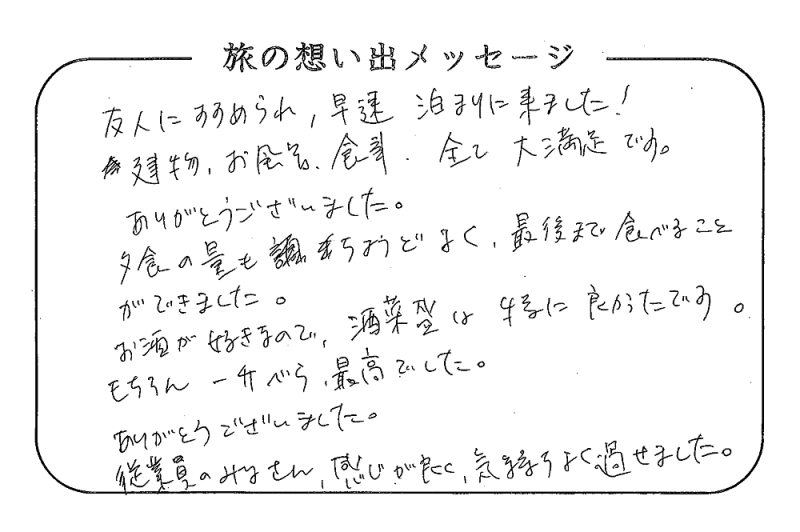 旅の想い出メッセージ
友人にすすめられ,早速 泊まりに来ました!
建物,お風呂、食事、全て 大満足です。
ありがとうございました。
夕食の量も ちょうどよく、最後まで食べること
ができました。
お酒が好きなので、酒菜盛は 特に 良かったです。
もちろん 一升べら,最高でした。
ありがとうございました。
従業員のみなさん,感じが良く,気持ちよく過せました。